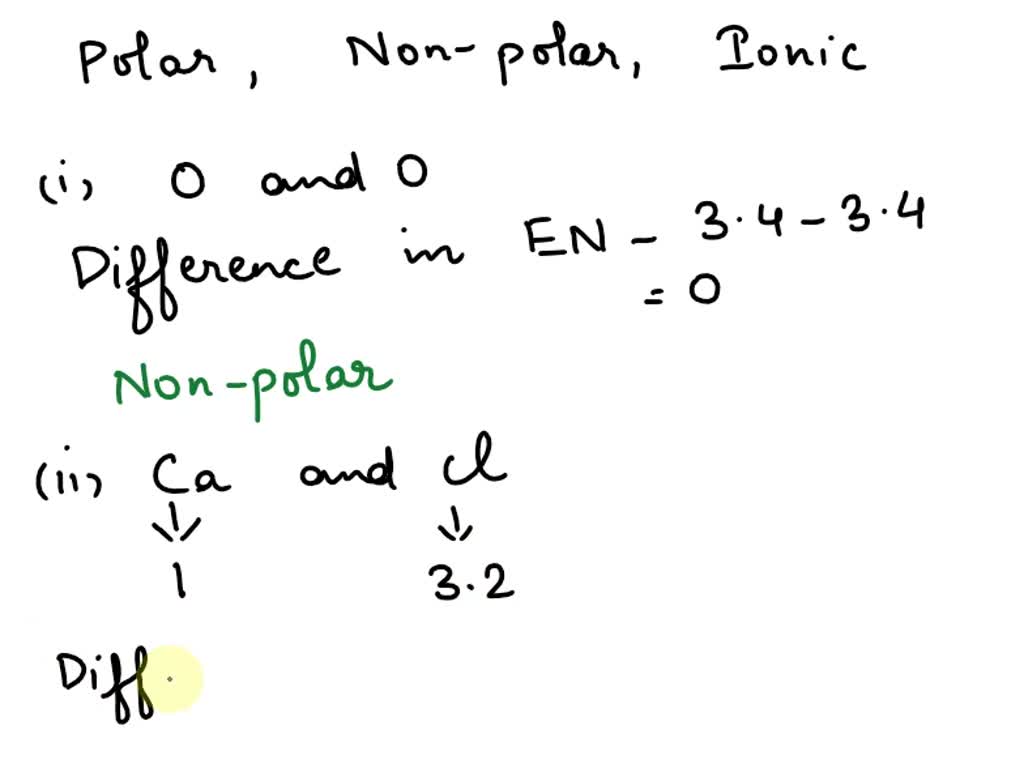 Polar, Non-polar, Ionic
(i) O and O
Difference in EN - 3.4 - 3.4
= 0
Non-polar
(ii) Ca and Cl
↓ ↓
1 3.2
Diff